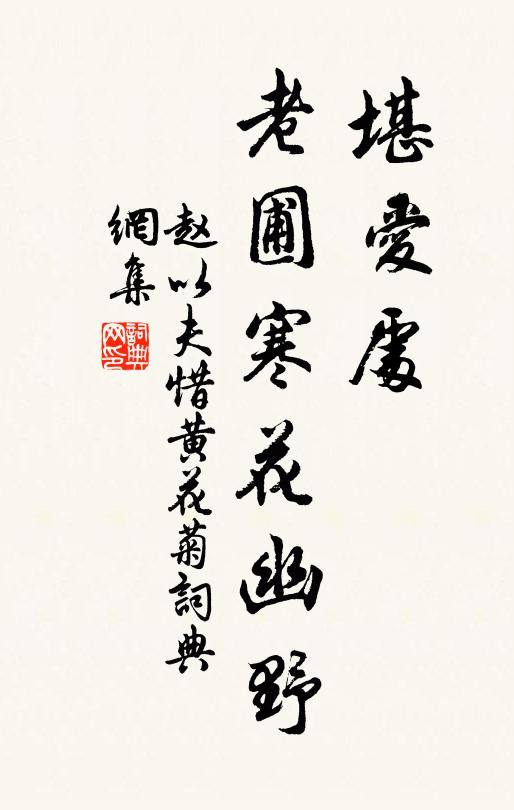 堪愛處
老圃寒花幽野
赵以夫惜黄花菊詞典
網集
詞典
网印